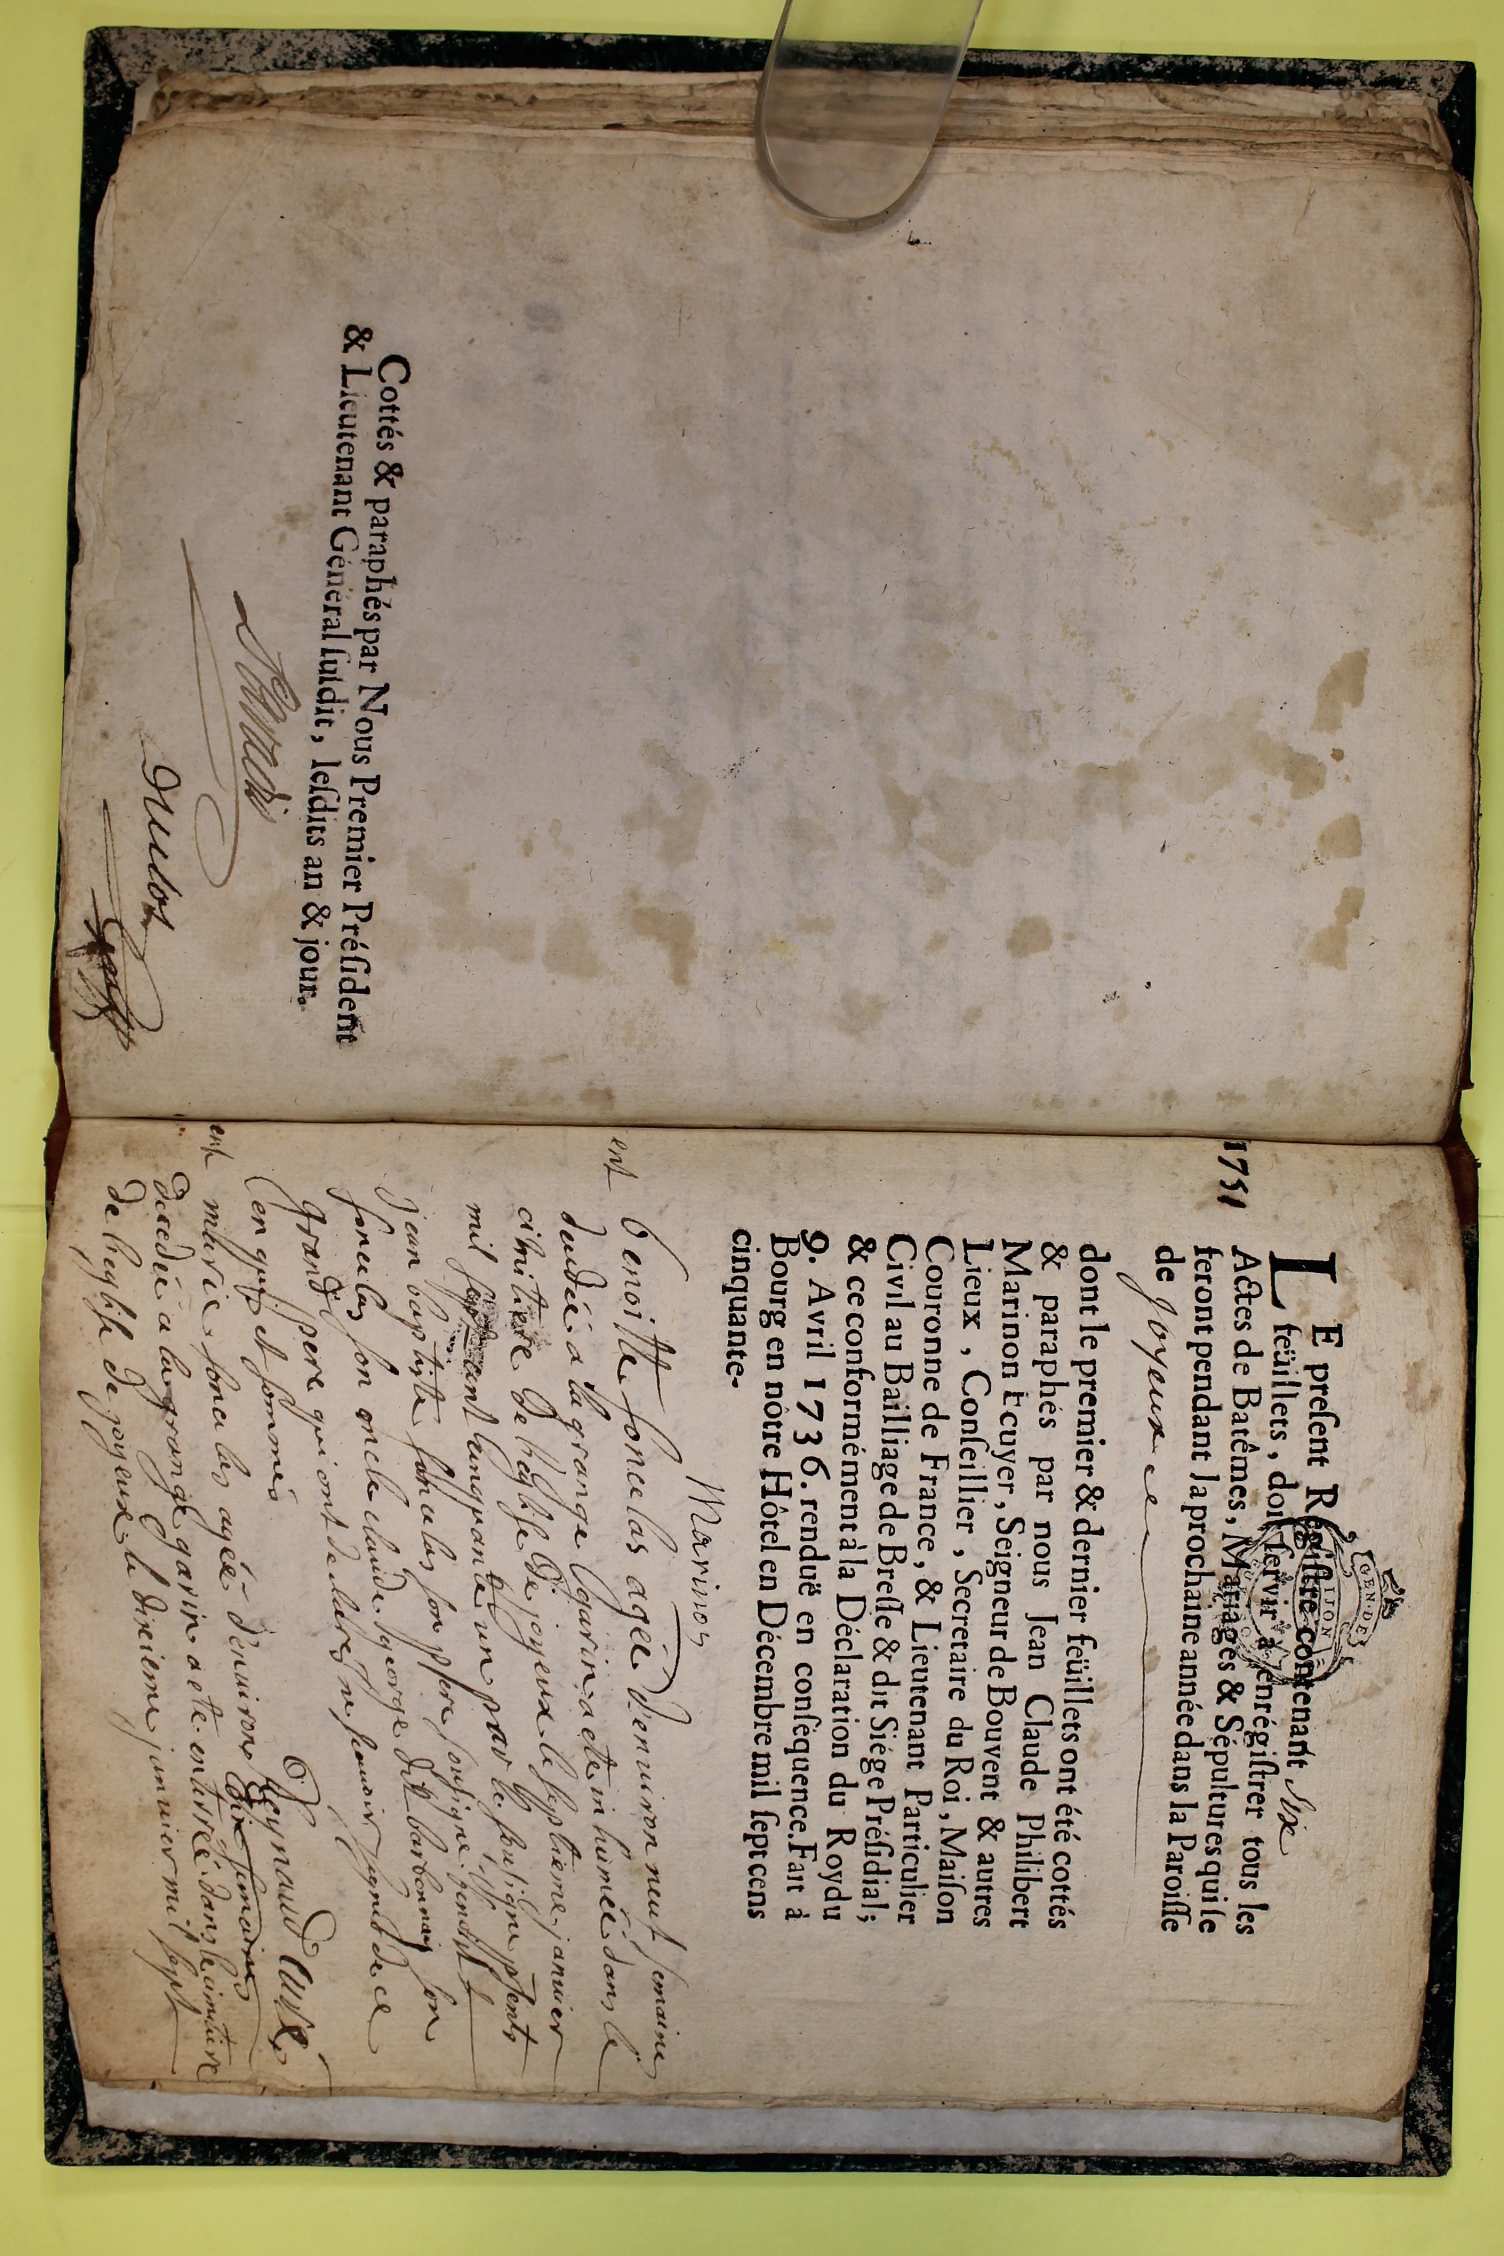 Cottés & paraphés par Nous Premier Préſident
& Lieutenant Général ſuſdit, leſdits an & jour.
1751
LE preſent Regiſtre contenant Six
feüillets, doit ſervir à enrégiſtrer tous les
Actes de Batêmes, Mariages & Sépultures qui ſe
feront pendant la prochaine année dans la Paroiſſe
de Joyeux ce
dont le premier & dernier feüillets ont été cottés
& paraphés par nous Jean Claude Philibert
Marinon Ecuyer, Seigneur de Bouvent & autres
Lieux, Conſeillier, Secretaire du Roi, Maiſon
Couronne de France, & Lieutenant Particulier
Civil au Bailliage de Breſſe & dit Siége Préſidial;
& ce conformément à la Déclaration du Roy du
9. Avril 1736. renduë en conſéquence. Fait à
Bourg en nôtre Hôtel en Décembre mil ſept cens
cinquante-
Marinon
ent benoitte foneulas agée d'environ neuf semaine
decedée a la grange garin a ete inhumée dans le
cimitiere de l'eglise de joyeux le septieme janvier
mil sept cent cinquante un par le soussigne psents
jean baptiste foneulas son pere soussigné
foneulas son oncle claude george dit barbonnais son
grand pere qui ont declaré ne scavoir signer de ce
enquis et sommés
Reynaud Curé
ent marie foneulas agée d'environ semaines
decedée a la grange garin a ete enterrée dans le cimitiere
de l'eglise de joyeux le dixieme janvier mil sept